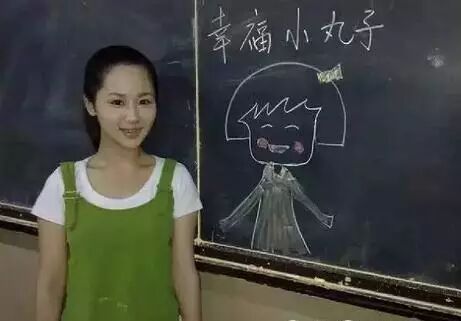 幸福小丸子